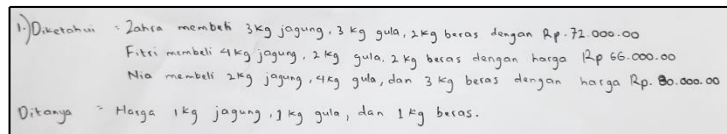 1.) Diketahui = Zahra membeli 3kg jagung, 3 kg gula, 2kg beras dengan Rp.72.000.00
Fitri membeli 4kg jagung, 2 kg gula. 2 kg beras dengan harga Rp 66.000.00
Nia membeli 2kg jagung, 4kg gula, dan 3 kg beras dengan harga Rp. 80.000.00
Ditanya = Harga 1kg jagung, 1 kg gula, dan 1 kg beras.